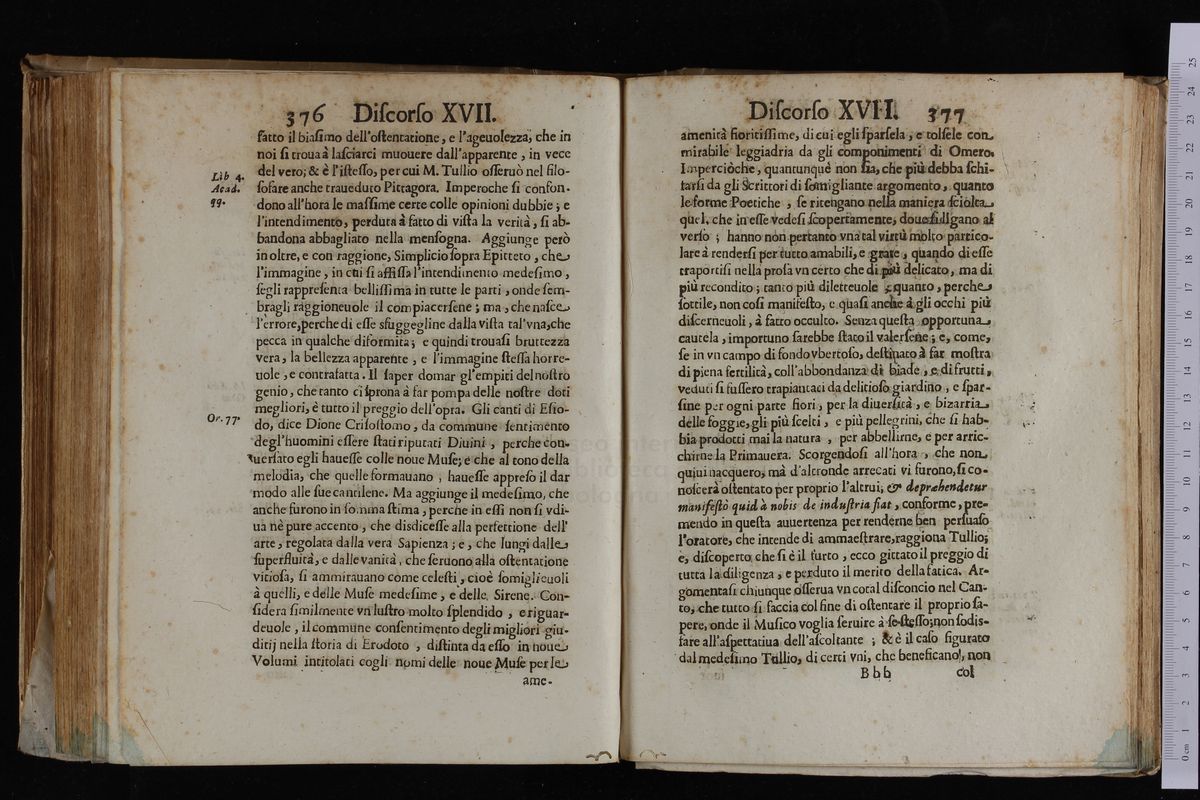 376 Diſcorſo XVII.
fatto il biaſimo dell'oſtentatione, e l'ageuolezza, che in
noi ſi troua à laſciarci muouere dall'apparente, in vece
del vero; & è l'iſteſſo, per cui M. Tullio oſſeruò nel filo-
Lib 4.
Acad.
qq.
ſofare anche traueduto Pittagora. Imperoche ſi confon-
dono all'hora le maſſime certe colle opinioni dubbie; e
l'intendimento, perduta à fatto di viſta la verità, ſi ab-
bandona abbagliato nella menſogna. Aggiunge però
in oltre, e con raggione, Simplicio ſopra Epitteto, che
l'immagine, in cui ſi affiſſa l'intendimento medeſimo,
ſegli rappreſenta belliſſima in tutte le parti, onde ſem-
bragli raggioneuole il compiacerſene; ma, che naſce
l'errore, perche di eſſe sfuggegline dalla viſta tal'vna, che
pecca in qualche diformità; e quindi trouaſi bruttezza
vera, la bellezza apparente, e l'immagine ſteſſa horre-
uole, e contrafatta. Il ſaper domar gl'empiti del noſtro
genio, che tanto ci ſprona à far pompa delle noſtre doti
megliori, è tutto il preggio dell'opra. Gli canti di Eſio-
Or. 77.
do, dice Dione Criſoſtomo, da commune ſentimento
degl'huomini eſſere ſtati riputati Diuini, perche con-
uerſato egli haueſſe colle noue Muſe; e che al tono della
melodia, che quelle formauano, haueſſe appreſo il dar
modo alle ſue cantilene. Ma aggiunge il medeſimo, che
anche furono in ſomma ſtima, perche in eſſi non ſi vdi-
ua nè pure accento, che disdiceſſe alla perfettione dell'
arte, regolata dalla vera Sapienza; e, che lungi dalle
ſuperfluità, e dalle vanità, che ſeruono alla oſtentatione
vitioſa, ſi ammirauano come celeſti, cioè ſomiglieuoli
à quelli, e delle Muſe medeſime, e delle Sirene. Con-
ſidera ſimilmente vn luſtro molto ſplendido, e riguar-
deuole, il commune conſentimento degli migliori giu-
ditij nella ſtoria di Erodoto, diſtinta da eſſo in noue
Volumi intitolati cogli nomi delle noue Muſe per le
ame-
Diſcorſo XVII. 377
amenità fioritiſſime, di cui egli ſparſela, e tolſele con
mirabile leggiadria da gli componimenti di Omero.
Imperciòche, quantunquè non ſia, che più debba ſchi-
farſi da gli Scrittori di ſomigliante argomento, quanto
le forme Poetiche, ſe ritengano nella maniera ſciolta
quel, che in eſſe vedeſi ſcopertamente, doue ſi lłgano al
verſo; hanno non pertanto vna tal virtù molto partico-
lare à renderſi per tutto amabili, e grate, quando di eſſe
traportiſi nella proſa vn certo che di più delicato, ma di
più recondito; tanto più diletteuole, quanto, perche
ſottile, non coſi manifeſto, e quaſi anche à gli occhi più
diſcerneuoli, à fatto occulto. Senza queſta opportuna
cautela, importuno ſarebbe ſtato il valerſene; e, come,
ſe in vn campo di fondo vbertoſo, deſtinato à far moſtra
di piena fertilità, coll'abbondanza di biade, e di frutti,
veduti ſi fuſſero trapiantati da delitioſo giardino, e ſpar-
ſine per ogni parte fiori, per la diuerſità, e bizarria
delle foggie, gli più ſcelti, e più pellegrini, che ſi hab-
bia prodotti mai la natura, per abbellirne, e per arric-
chirne la Primauera. Scorgendoſi all'hora, che non
quiui nacquero, mà d'altronde arrecati vi furono, ſi co-
noſcerà oſtentato per proprio l'altrui, & depræhendetur
manifeſtò quid à nobis de induſtria fiat, conforme, pre-
mendo in queſta auuertenza per renderne ben perſuaſo
l'oratore, che intende di ammaeſtrare, raggiona Tullio;
e, diſcoperto che ſi è il furto, ecco gittato il preggio di
tutta la diligenza, e perduto il merito della fatica. Ar-
gomentaſi chiunque oſſerua vn cotal diſconcio nel Can-
to, che tutto ſi faccia col fine di oſtentare il proprio ſa-
pere, onde il Muſico voglia ſeruire à ſe ſteſſo; non ſodis-
fare all'aſpettatiua dell'aſcoltante; & è il caſo figurato
dal medeſimo Tullio, di certi vni, che beneficano, non
Bbb col